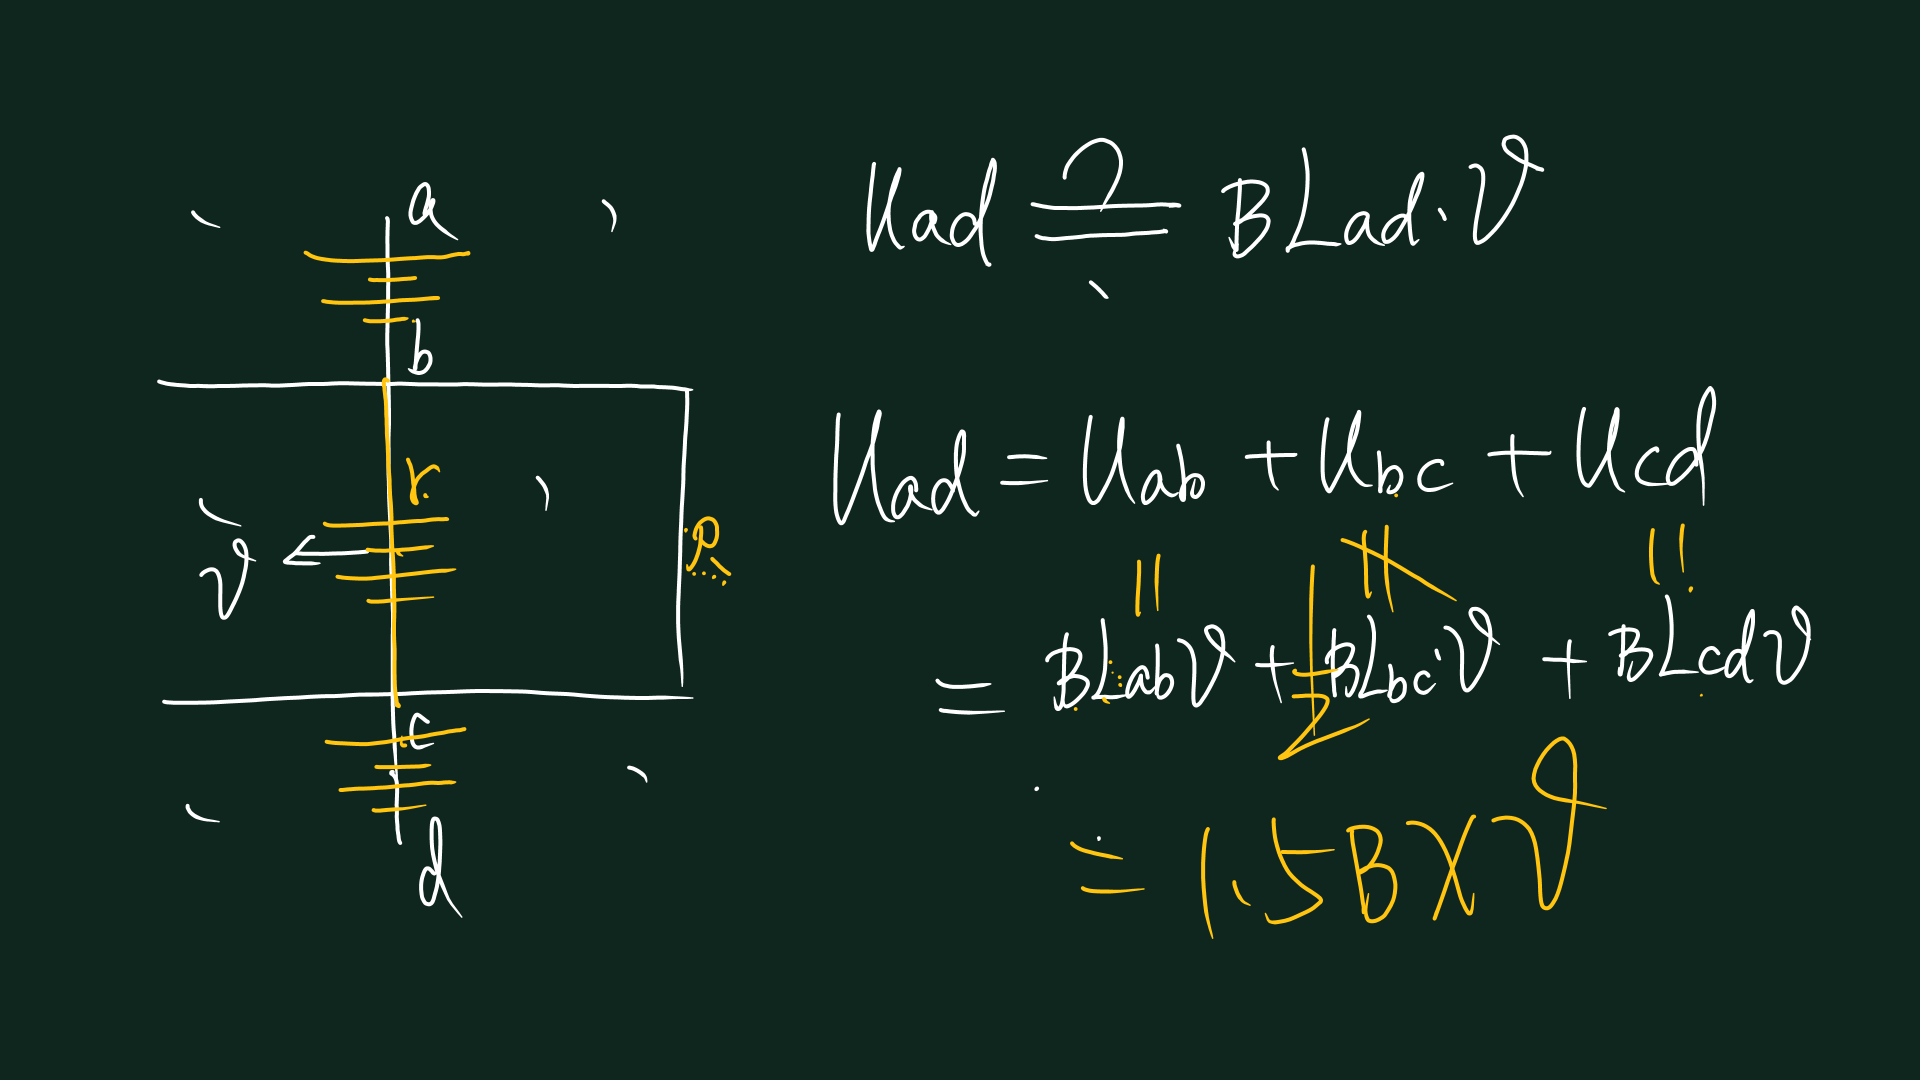 a
b
r
R
v
c
d
Uad =? BLad·v
Uad = Uab + Ubc + Ucd
= BLabv + BLbc·v + BLcdv
= 1.5B×v